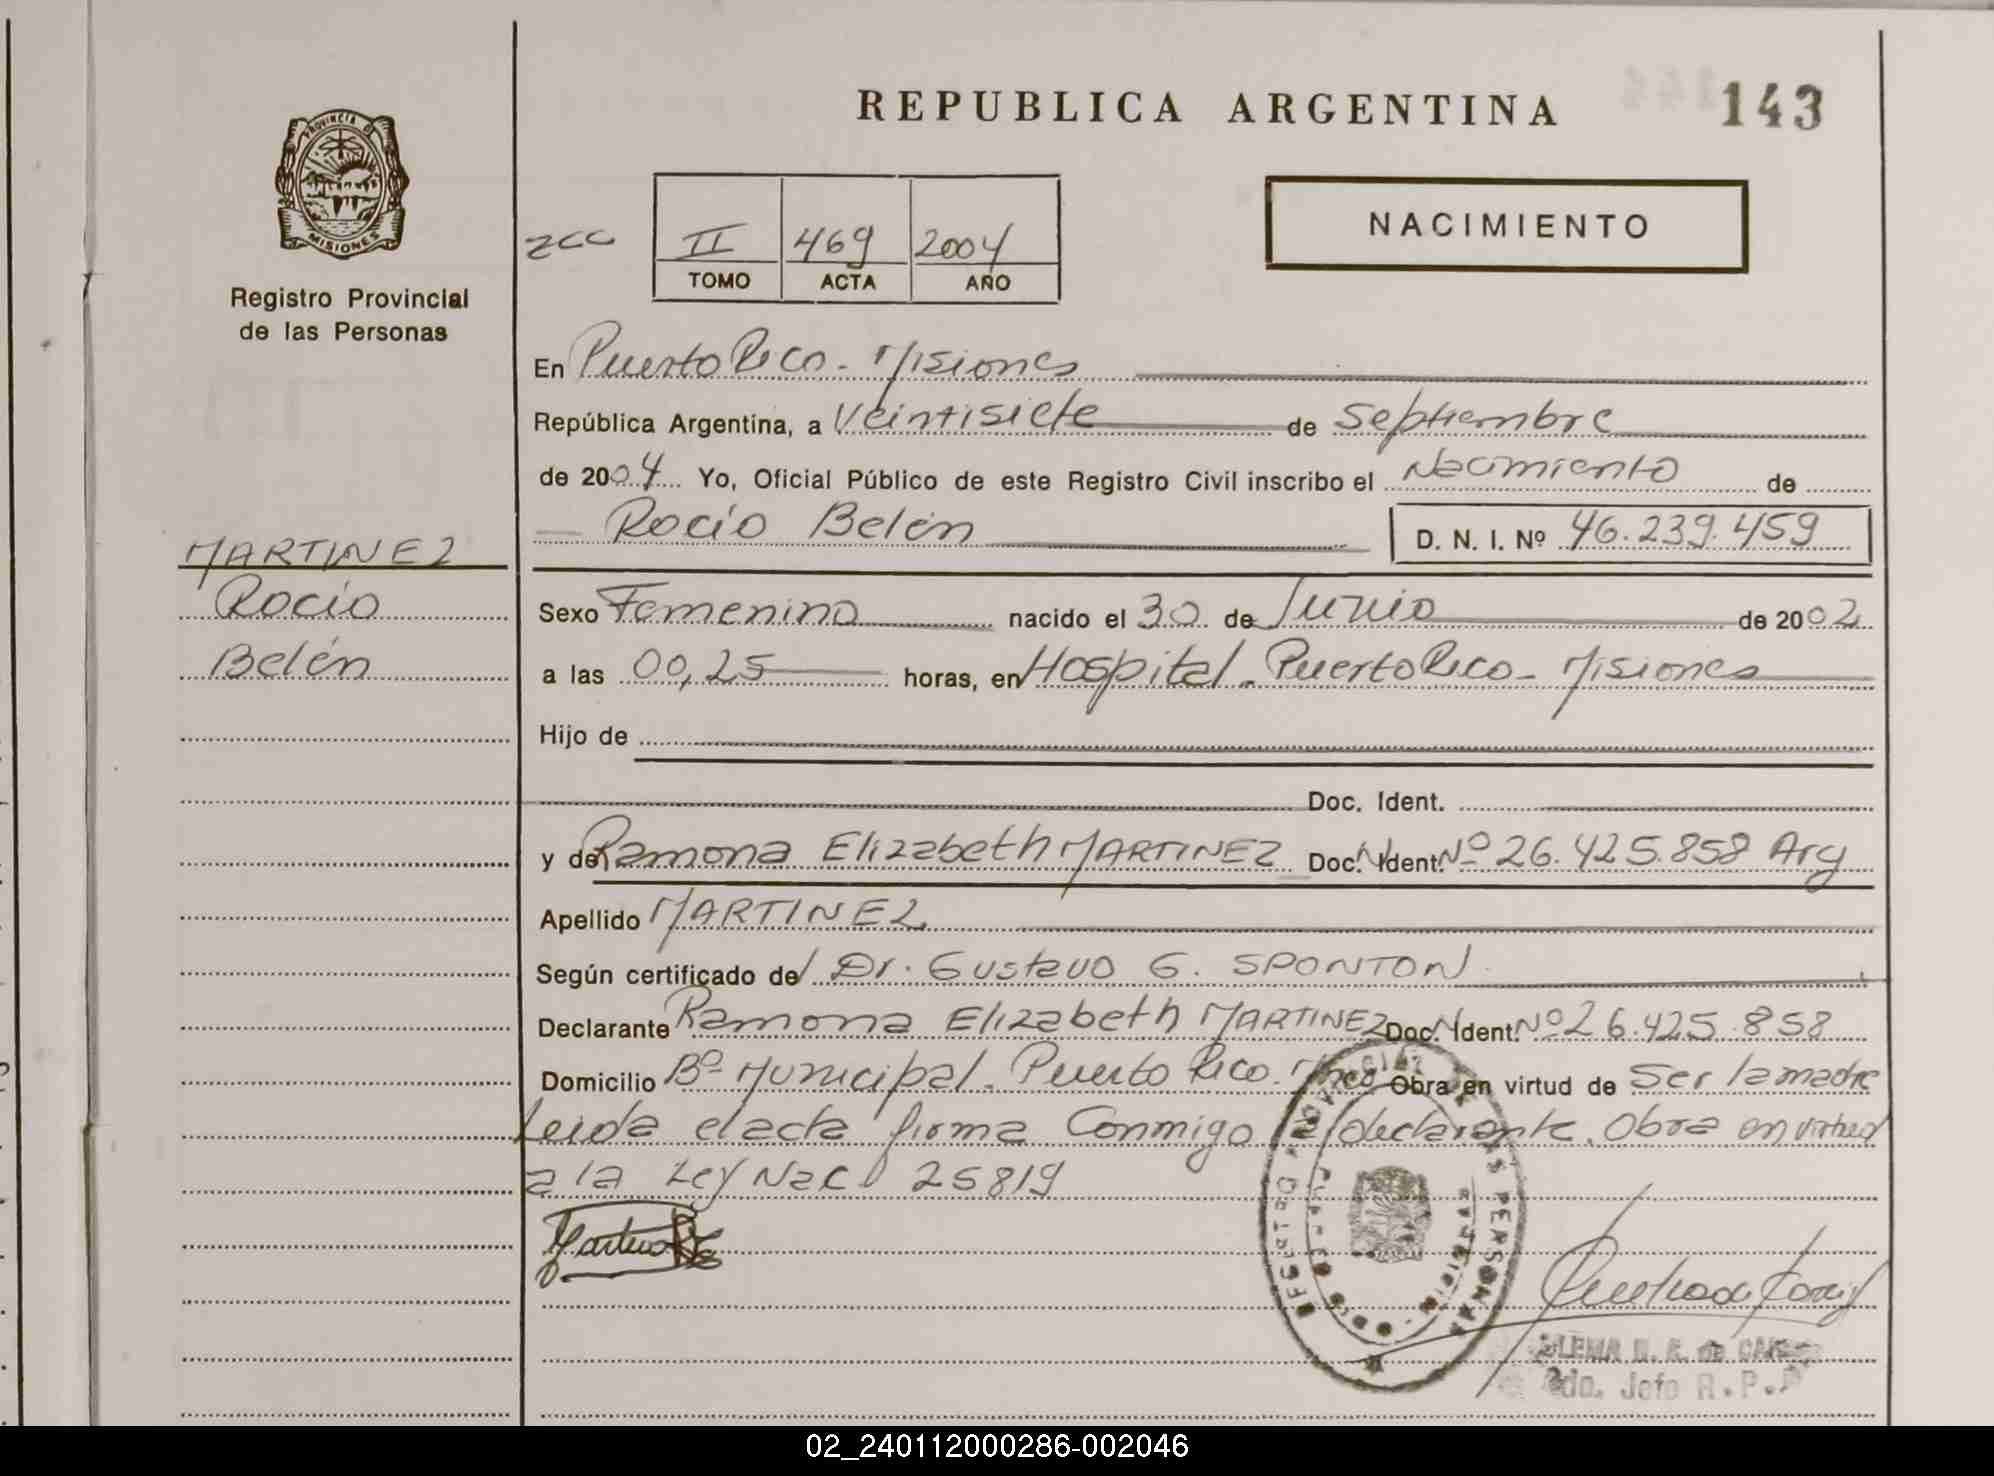 REPUBLICA ARGENTINA
143
PROVINCIA DE
MISIONES
Registro Provincial
de las Personas
II 469 2004
TOMO ACTA AÑO
NACIMIENTO
En Puerto Rico - Misiones
República Argentina, a Veintisiete de Septiembre
de 2004 Yo, Oficial Público de este Registro Civil inscribo el Nacimiento de
Rocío Belén D. N. I. Nº 46.239.459
MARTINEZ
Rocío
Belén
Sexo Femenino nacido el 30 de Junio de 2002
a las 00,25 horas, en Hospital - Puerto Rico - Misiones
Hijo de
Doc. Ident.
y de Ramona Elizabeth MARTINEZ Doc. Ident. Nº 26.425.858 Arg
Apellido MARTINEZ
Según certificado de Dr. Gustavo G. SPONTON
Declarante Ramona Elizabeth MARTINEZ Doc. Ident. Nº 26.425.858
Domicilio Bº Municipal - Puerto Rico - Mnes Obra en virtud de Ser la madre
Leida el acta firma Conmigo la declarante. Obra en virtud
a la Ley Nac 25819
REGISTRO PROVINCIAL DE LAS PERSONAS
2do. Jefe R.P.P
02_240112000286-002046